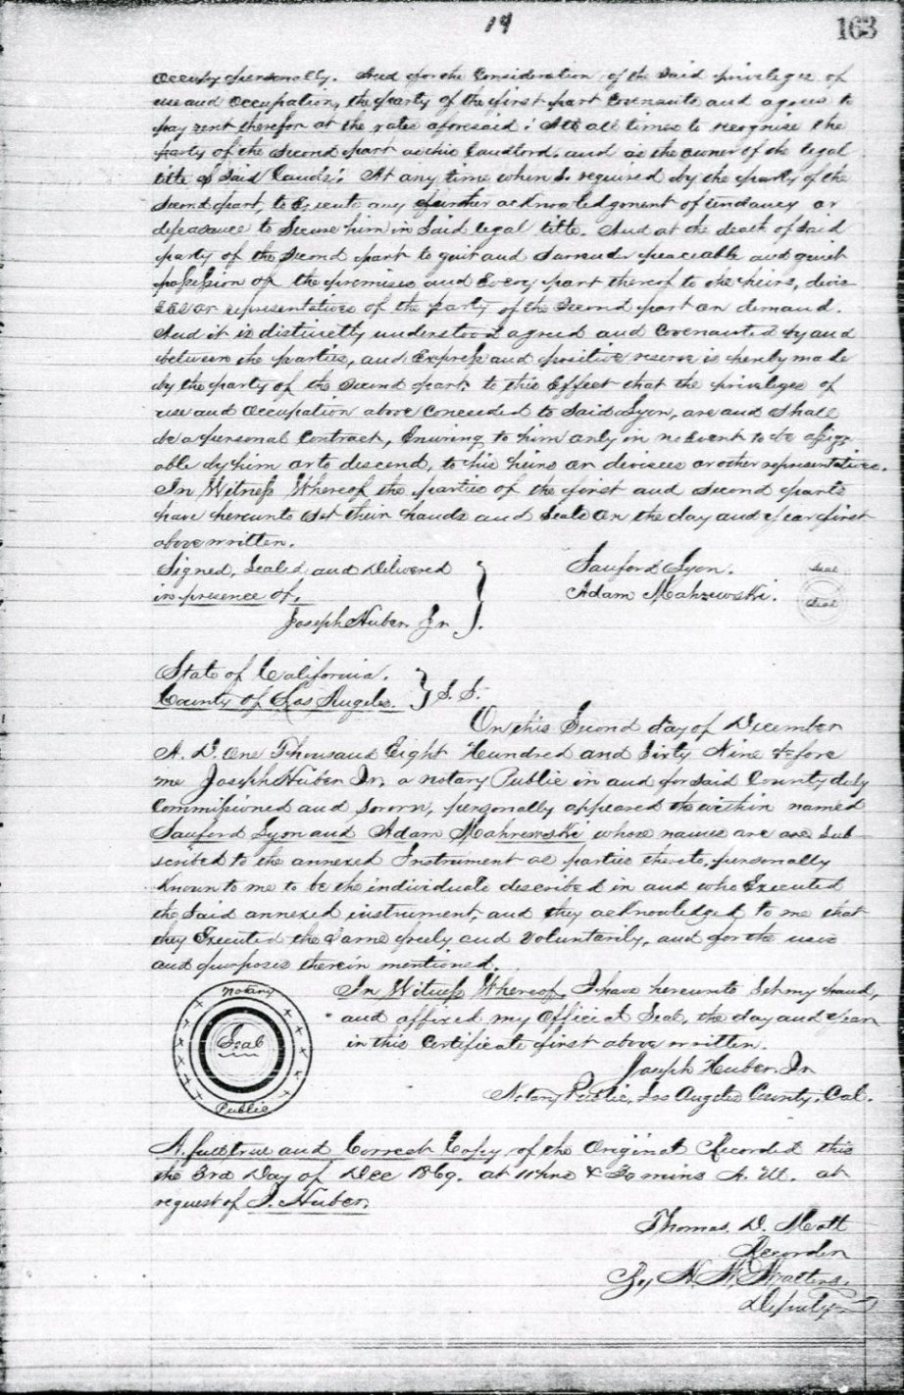 19
163
occupy personally. And for the Consideration of the said privileges of
use and occupation, the party of the first part covenants and agrees to
pay rent therefor at the rates aforesaid; At all times to recognise the
party of the Second part as his Landlord. and as the owner of the legal
title of said lands; At any time when so required by the party of the
Second part, to Execute any further acknowledgment of tenancy or
defeasance to Secure him in Said legal title. And at the death of said
party of the Second part to quit and Surrender peaceable and quiet
possession of the premises and Every part thereof to the heirs, devis
ees or representatives of the party of the Second part on demand.
And it is distinctly understood agreed and Covenanted by and
between the parties, and Express and positive reserve is hereby made
by the party of the Second part, to this Effect that the privileges of
use and occupation above Conceeded to Said Lyon, are and Shall
be a personal Contract, Enuring to him only in no Event to be assign
able by him or to descend, to his heirs or devisees or other representatives.
In Witness Whereof the parties of the first and Second parts
have hereunto set their hands and Seals on the day and year first
above written.
Signed, Sealed and Delivered
in presence of,
Joseph Huber Jr.
Sanford Lyon. Seal
Adam Mahrewski. Seal
State of California.
County of Los Angeles. } S. S.
On this Second day of December
A. D. One Thousand Eight Hundred and Sixty Nine before
me Joseph Huber Jr, a notary Public in and for said County duly
Commissioned and Sworn, personally appeared the within named
Sanford Lyon and Adam Mahrewski whose names are are Sub-
scribed to the annexed Instrument as parties thereto, personally
Known to me to be the individuals described in and who Executed
the Said annexed instrument, and they acknowledged to me that
they Executed the Same freely and Voluntarily, and for the uses
and purposes therein mentioned.
Notary
Seal
Public
In Witness Whereof, I have hereunto Set my hand,
and affixed my Official Seal, the day and year
in this Certificate first above written.
Joseph Huber Jr
Notary Public, Los Angeles County, Cal.
A full true and Correct Copy of the Original Recorded this
the 3rd Day of Dec 1869. at 11 hrs & mins A. M. at
request of J. Huber.
Thomas. D. Mott
Recorder
By
Deputy